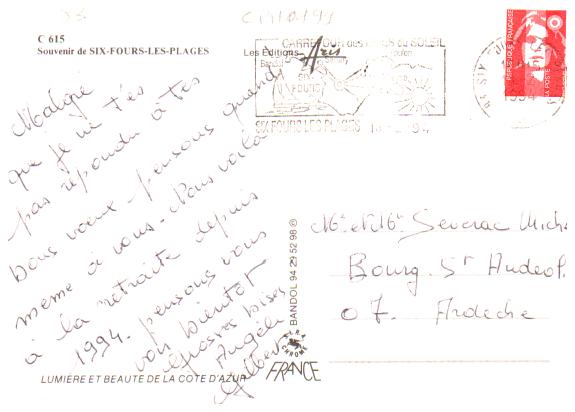 C 615
Souvenir de SIX-FOURS-LES-PLAGES
Les Editions Aris
CARREFOUR DES DU SOLEIL
Bandol
SIX FOURS
SIX FOURS LES PLAGES
94
REPUBLIQUE FRANÇAISE
LA POSTE
1994
Malgré
que je ne t'es
pas répondu à tes
bons vœux - pensons quand
même à vous - Nous voilà
à la retraite depuis
1994 - pensons vous
voir bientôt
Grosses bises
Angèle
Gilbert
Me et Mr Severac Miche
Bourg. St Andeol.
07. Ardeche
BANDOL 94 29 52 98 ©
FRANCE
LUMIÈRE ET BEAUTE DE LA COTE D'AZUR